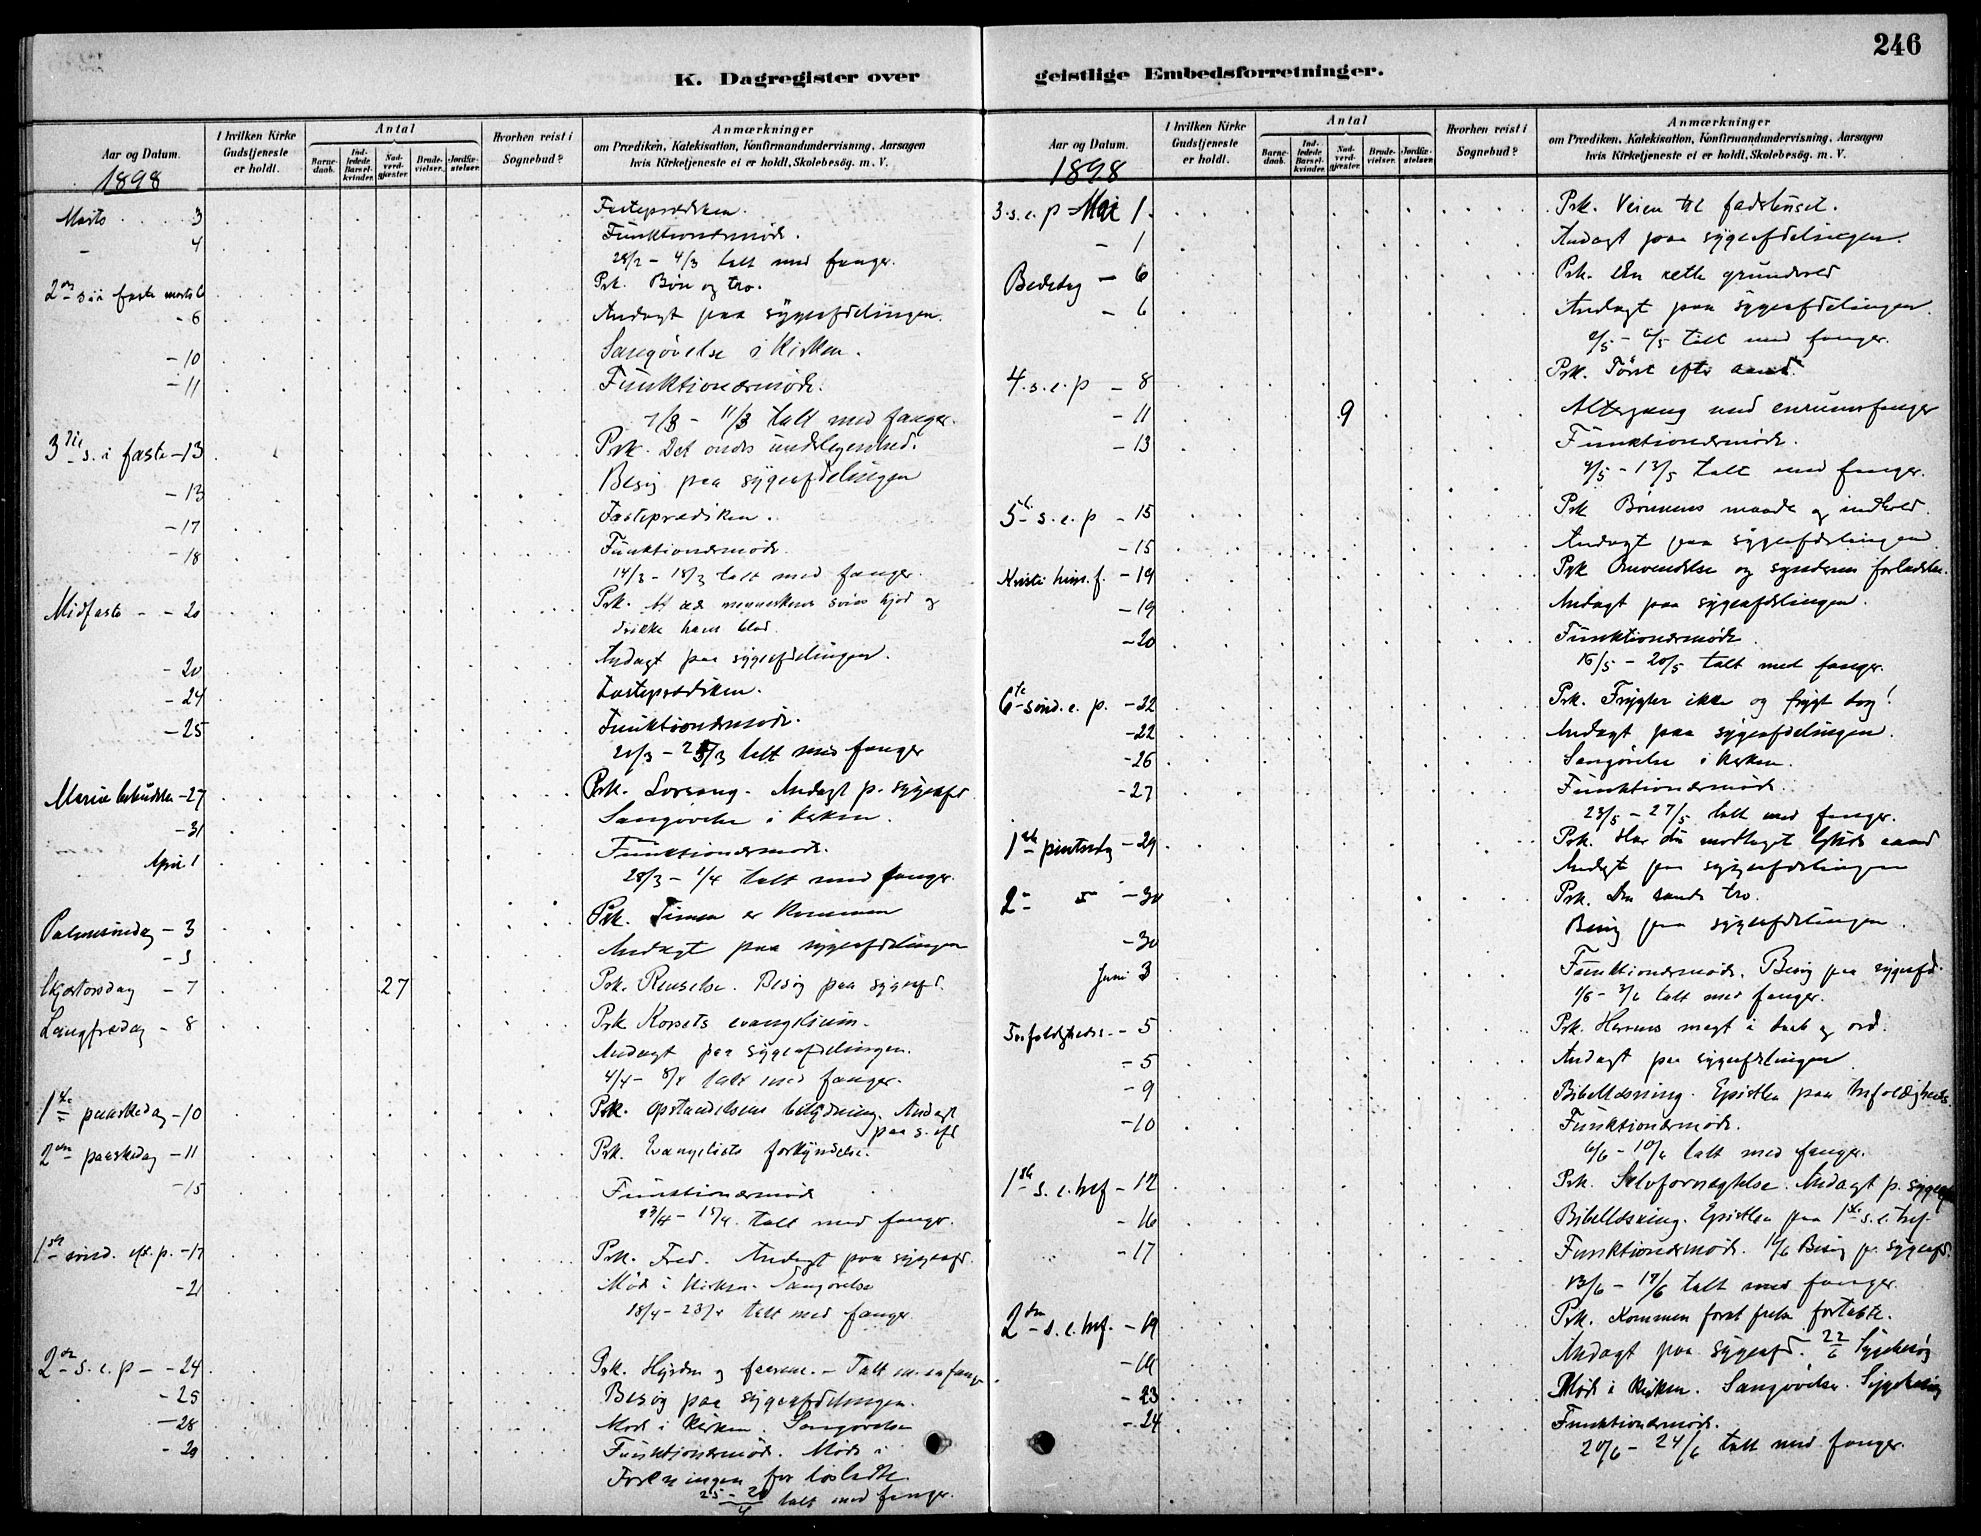 246
K. Dagregister over geistlige Embedsforretninger.
Aar og Datum.
I hvilken Kirke Gudstjeneste er holdt.
Antal
Barnedaab.
Indledede Barselkvinder.
Nadverdgjæster.
Brudevielser.
Jordfæstelser.
Hvorhen reist i Sognebud?
Anmærkninger
om Prædiken, Katekisation, Konfirmandundervisning, Aarsagen hvis Kirketjeneste ei er holdt, Skolebesøg. m. V.
1898
Marts 3 Fasteprædiken.
- 4 Funktionærmøde.
28/2 - 4/3 talt med fanger.
2den s. i faste marts 6 Prk. Bøn og tro.
- 6 Andagt paa sygeafdelingen.
- 10 Sangøvelse i kirken.
- 11 Funktionærmøde.
7/3 - 11/3 talt med fanger.
3die s. i faste - 13 Prk. Det ondes
- 13 Besøg paa sygeafdelingen
- 17 Fasteprædiken.
- 18 Funktionærmøde.
14/3 - 18/3 talt med fanger.
Midfaste - 20 Prk. At æde menneskens søns kjød og
drikke hans blod.
- 20 Andagt paa sygeafdelingen.
- 24 Fasteprædiken.
- 25 Funktionærmøde.
21/3 - 25/3 talt med fanger
Mariæ bebudelse - 27 Prk. Lovsang. Andagt p. sygeafd.
- 31 Sangøvelse i kirken.
April 1 Funktionærmøde.
28/3 - 1/4 talt med fanger.
Palmesøndag - 3 Prk. Timen er kommen
- 3 Andagt paa sygeafdelingen
Skjærtorsdag - 7 27 Prk. Renselse. Besøg paa sygeafd.
Langfredag - 8 Prk. Korsets evangelium.
Andagt paa sygeafdelingen.
4/4 - 8/4 talt med fanger.
1ste paaskedag - 10 Prk. Opstandelsens betydning. Andagt
paa s. afd
2den paaskedag - 11 Prk. Evangeliets forkyndelse.
- 15 Funktionærmøde
talt med fanger.
1ste sønd. eft. p. - 17 Prk. Fred. Andagt paa sygeafd.
- 21 Møde i kirken. Sangøvelse
18/4 - 23/4 talt med fanger.
2den s. e. p - 24 Prk. Hyrden og faarene. - Talt m. en fange
- 25 Besøg paa sygeafdelingen.
- 28 Møde i kirken. Sangøvelse
- 29 Funktionærmøde. Møde i
Foreningen for løsladte.
talt med fanger.
Aar og Datum.
I hvilken Kirke Gudstjeneste er holdt.
Antal
Barnedaab.
Indledede Barselkvinder.
Nadverdgjæster.
Brudevielser.
Jordfæstelser.
Hvorhen reist i Sognebud?
Anmærkninger
om Prædiken, Katekisation, Konfirmandundervisning, Aarsagen hvis Kirketjeneste ei er holdt, Skolebesøg. m. V.
1898
3. s. e. p Mai 1. Prk. Veien til fadshuset.
- 1 Andagt paa sygeafdelingen.
Bededag - 6 Prk. Den rette grundvold
- 6 Andagt paa sygeafdelingen.
2/5 - 6/5 talt med fanger.
4. s. e. p - 8 Prk. Tørst efter aand.
- 11 9 Altergang med enrumsfanger
- 13 Funktionærmøde.
9/5 - 13/5 talt med fanger.
5te s. e. p - 15 Prk Bønnens maade og indhold.
- 15 Andagt paa sygeafdelingen
Kristi him. f. - 19 Prk Omvendelse og syndernes forladelse.
- 19 Andagt paa sygeafdelingen.
- 20 Funktionærmøde.
16/5 - 20/5 talt med fanger.
6te sønd. e. p. - 22 Prk. Frygter ikke og frygt dog!
- 22 Andagt paa sygeafdelingen.
- 26 Sangøvelse i kirken.
- 27 Funktionærmøde.
23/5 - 27/5 talt med fanger.
1ste pintsedag - 29 Prk. Har du modtaget Guds aand
Andagt paa sygeafdelingen
2- - 30 Prk. Den sande tro.
- 30 Besøg paa sygeafdelingen.
Juni 3 Funktionærmøde. Besøg paa sygeafd.
1/6 - 3/6 talt med fanger.
Trefoldigheds. - 5 Prk. Herrens magt i daab og ord.
- 5 Andagt paa sygeafdelingen
- 9 Bibellæsning. Epistlen paa trefoldigheds.
- 10 Funktionærmøde.
6/6 - 10/6 talt med fanger.
1ste s. e. tref - 12 Prk. Selvfornægtelse. Andagt p. sygeafd
- 16 Bibellæsning. Epistlen paa 1ste s. e. tref.
- 17 Funktionærmøde. 16/6 Besøg p. sygeafd.
13/6 - 17/6 talt med fanger.
2den s. e. tref. - 19 Prk. Kommen forat frelse fortabte.
- 19 Andagt paa sygeafd. 22/6 Sygebesøg
- 23 Møde i kirken. Sangøvelse. Sygebesøg
- 24 Funktionærmøde.
20/6 - 24/6 talt med fanger.